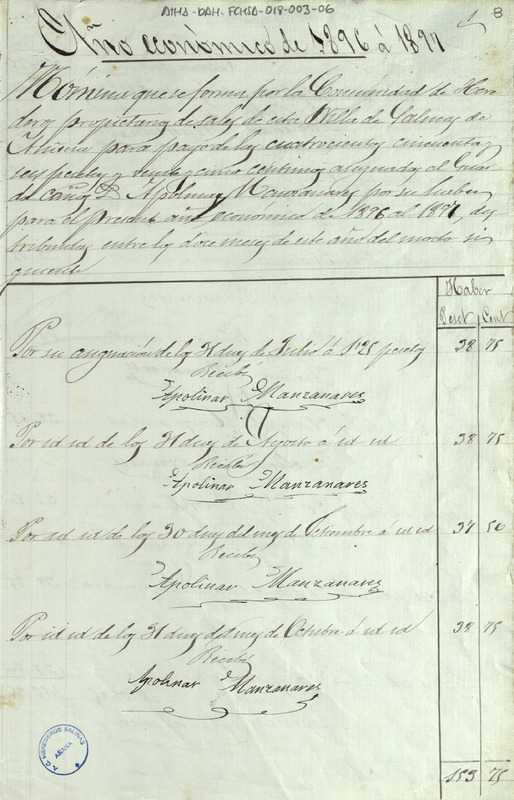 ATHA-DAH-FCHSA-018-003-06
8
Año económico de 1896 á 1897
Nómina que se forma por la Comunidad de Here-
deros propietarios de sales de esta Villa de Salinas de
Añana para pago de los cuatrocientos cincuenta y
seis pesetas y veinte y cinco centimos asignados al Guar-
da cañas D. Apolinar Manzanares por su haber
para el presente año económico de 1896 al 1897, dis
tribuidas entre los doce meses de este año del modo si
guiente
Haber
Peset Cent
Por su asignación de los 31 dias de Julio á 1'25 pesetas 38 75
Recibí
Apolinar Manzanares
Por id id de los 31 dias de Agosto á id id 38 75
Recibí
Apolinar Manzanares
Por id id de los 30 dias del mes de Setiembre á id id 37 50
Recibí
Apolinar Manzanares
Por id id de los 31 dias del mes de Octubre á id id 38 75
Recibí
Apolinar Manzanares
153 75
HEREDEROS SALINAS
AÑANA